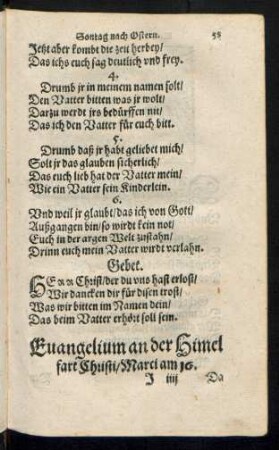 Sontag nach Ostern. 58
Jetzt aber kombt die zeit herbey/
Das ichs euch sag deutlich vnd frey.
4.
Drumb jr in meinem namen solt/
Den Vatter bitten was jr wolt/
Darzu werdt jrs bedürffen nit/
Das ich den Vatter für euch bitt.
5.
Drumb daß jr habt geliebet mich/
Solt jr das glauben sicherlich/
Das euch lieb hat der Vatter mein/
Wie ein Vatter sein Kinderlein.
6.
Vnd weil jr glaubt/das ich von Gott/
Außgangen bin/so wirdt kein not/
Euch in der argen Welt zustahn/
Drinn euch mein Vatter wirdt verlahn.
Gebet.
HErr Christ/der du vns hast erlost/
Wir dancken dir für disen trost/
Was wir bitten im Namen dein/
Das beim Vatter erhört soll sein.
Euangelium an der Himel
fart Christi/Marci am 16.
J iiij Da